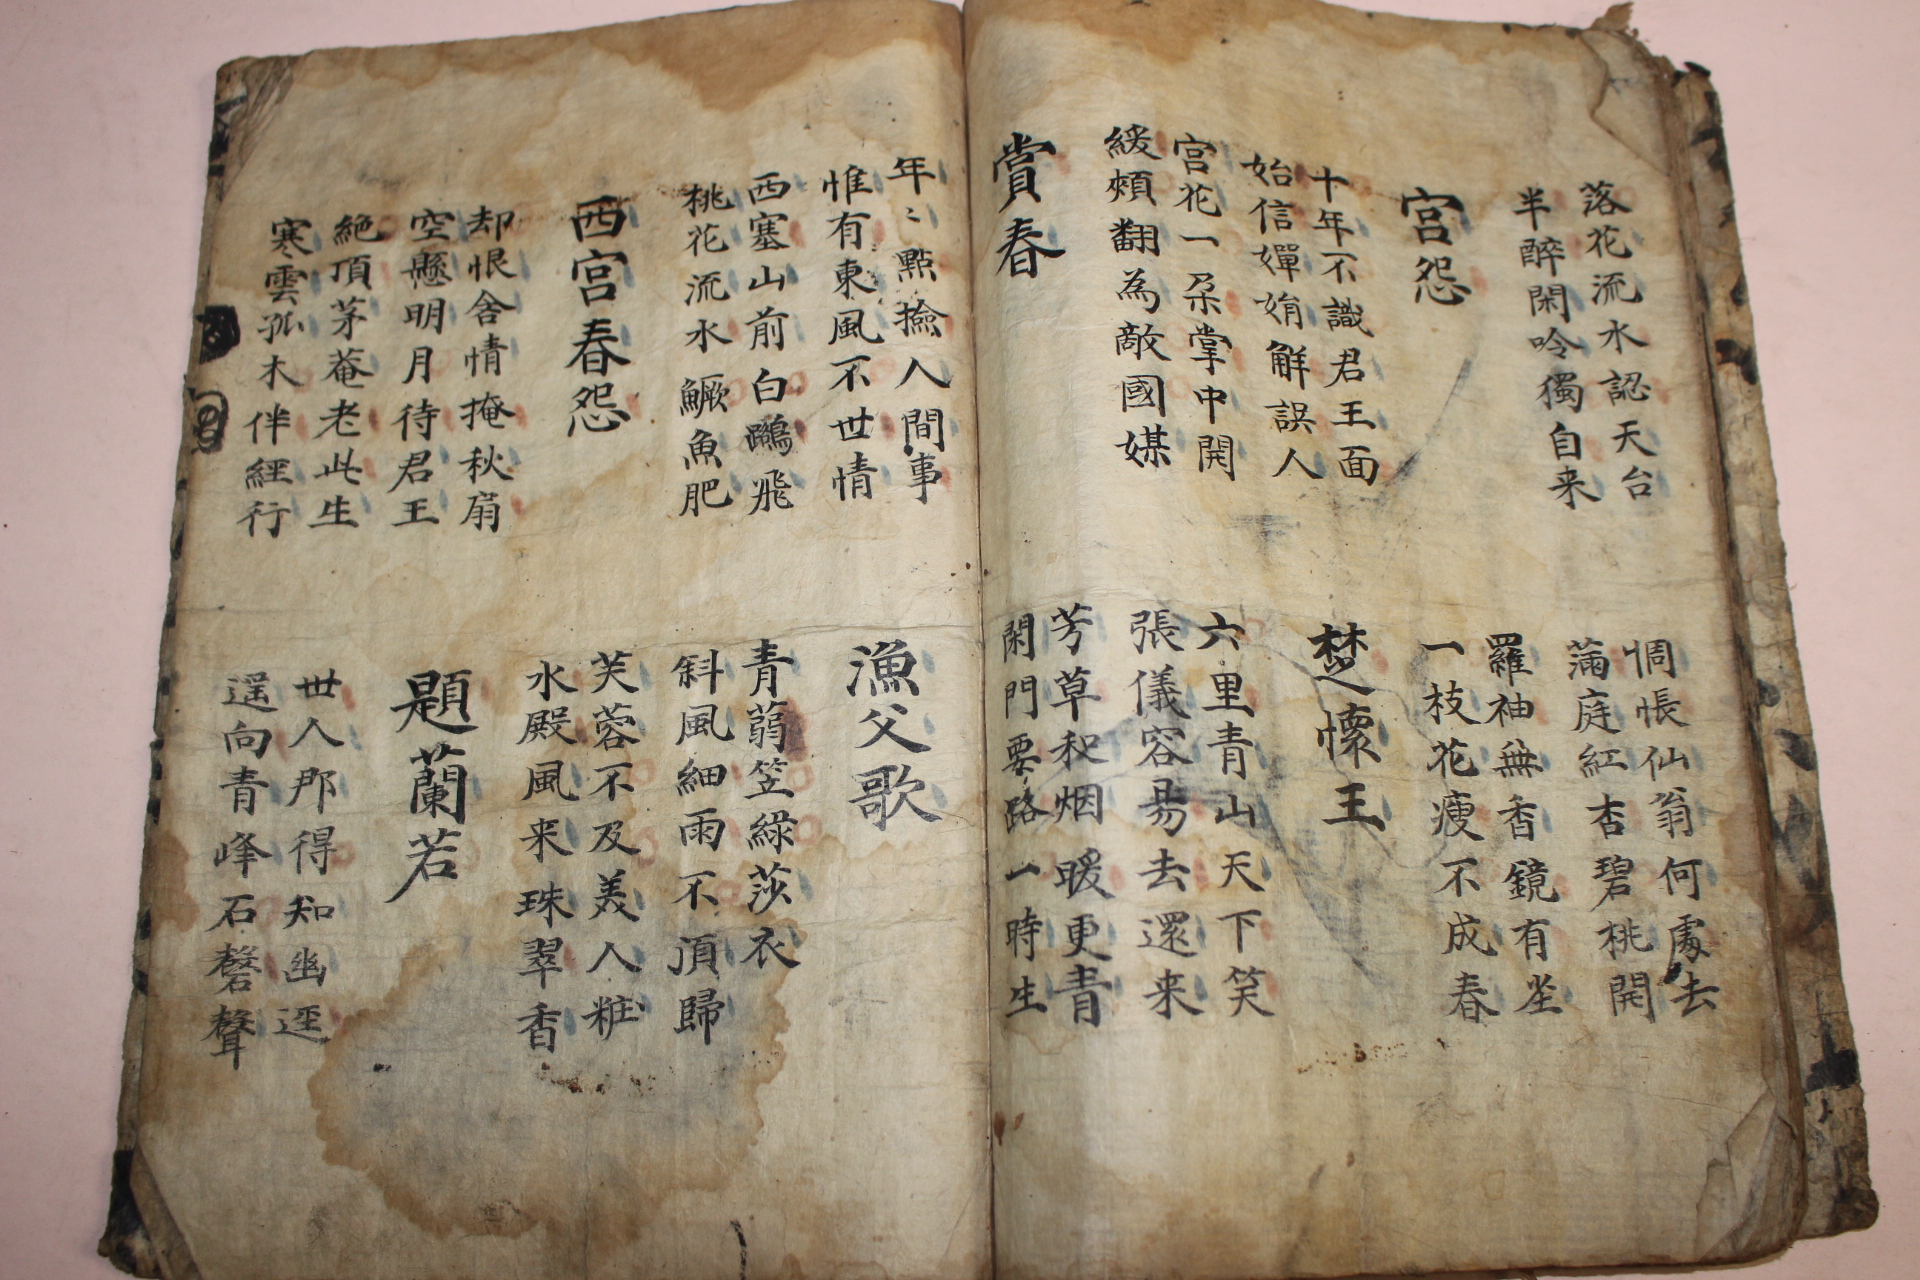 落花流水認天台
半醉閑吟獨自来
惆悵仙翁何處去
滿庭紅杏碧桃開
宮怨
羅袖無香鏡有坐
一枝花瘦不成春
十年不識君王面
始信嬋娟解誤人
楚懷王
宮花一朶掌中開
緩頰翻為敵國媒
六里青山天下笑
張儀容易去還来
賞春
芳草和烟暖更青
閑門要路一時生
年〻點撿人間事
惟有東風不世情
漁父歌
西塞山前白鷗飛
桃花流水鱖魚肥
青蒻笠綠莎衣
斜風細雨不須歸
西宮春怨
芙蓉不及美人粧
水殿風来珠翠香
却恨舍情掩秋扇
空懸明月待君王
題蘭若
絶頂茅菴老此生
寒雲孤木伴經行
世人那得知幽逕
遥向青峰石磬聲